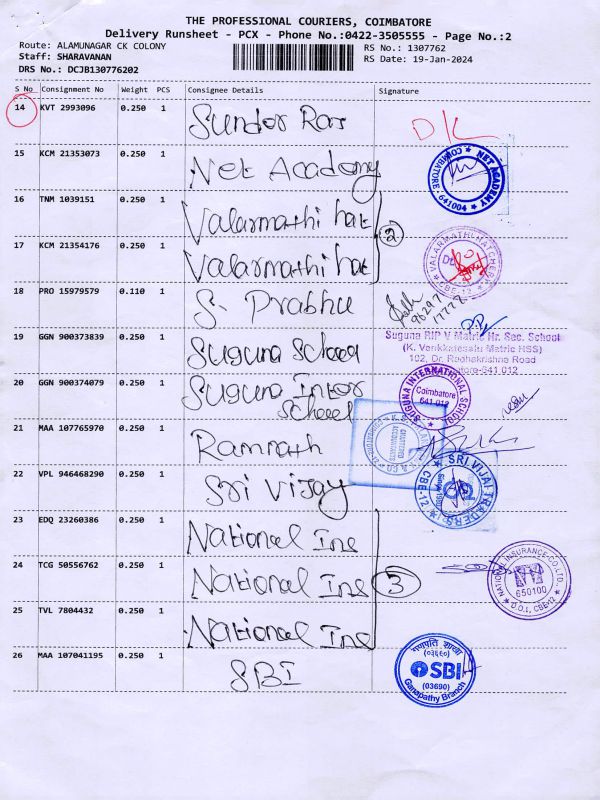 THE PROFESSIONAL COURIERS, COIMBATORE
Delivery Runsheet - PCX - Phone No.:0422-3505555 - Page No.:2
Route: ALAMUNAGAR CK COLONY
RS No.: 1307762
Staff: SHARAVANAN
RS Date: 19-Jan-2024
DRS No.: DCJB130776202
S No Consignment No Weight PCS Consignee Details Signature
14 KVT 2993096 0.250 1 Sundar Raj
15 KCM 21353073 0.250 1 Net Academy
NET ACADEMY
COIMBATORE-641004
16 TNM 1039151 0.250 1 Valarmathi hat
2
17 KCM 21354176 0.250 1 Valarmathi hat
CBE-12
18 PRO 15979579 0.110 1 S. Prabhu
19 GGN 900373839 0.250 1 Suguna School
Suguna RIP V Matric Hr. Sec. School
(K. Venkkatesalu Matric HSS)
102, Dr. Radhakrishna Road
20 GGN 900374079 0.250 1 Suguna Inter School
SUGUNA INTERNATIONAL SCHOOL
Coimbatore
641 012
21 MAA 107765970 0.250 1 Ramnath
CHARTERED
ACCOUNTANTS
22 VPL 946468290 0.250 1 Sri Vijay
SRI VIJAI TRADERS
CBE-12
23 EDQ 23260386 0.250 1 National Ins
24 TCG 50556762 0.250 1 National Ins
3
NATIONAL INSURANCE CO.LTD.,
650100
D.O.I, CBE-12
25 TVL 7804432 0.250 1 National Ins
26 MAA 107041195 0.250 1 SBI
गणपति शाखा
(०३६९०)
SBI
(03690)
Ganapathy Branch